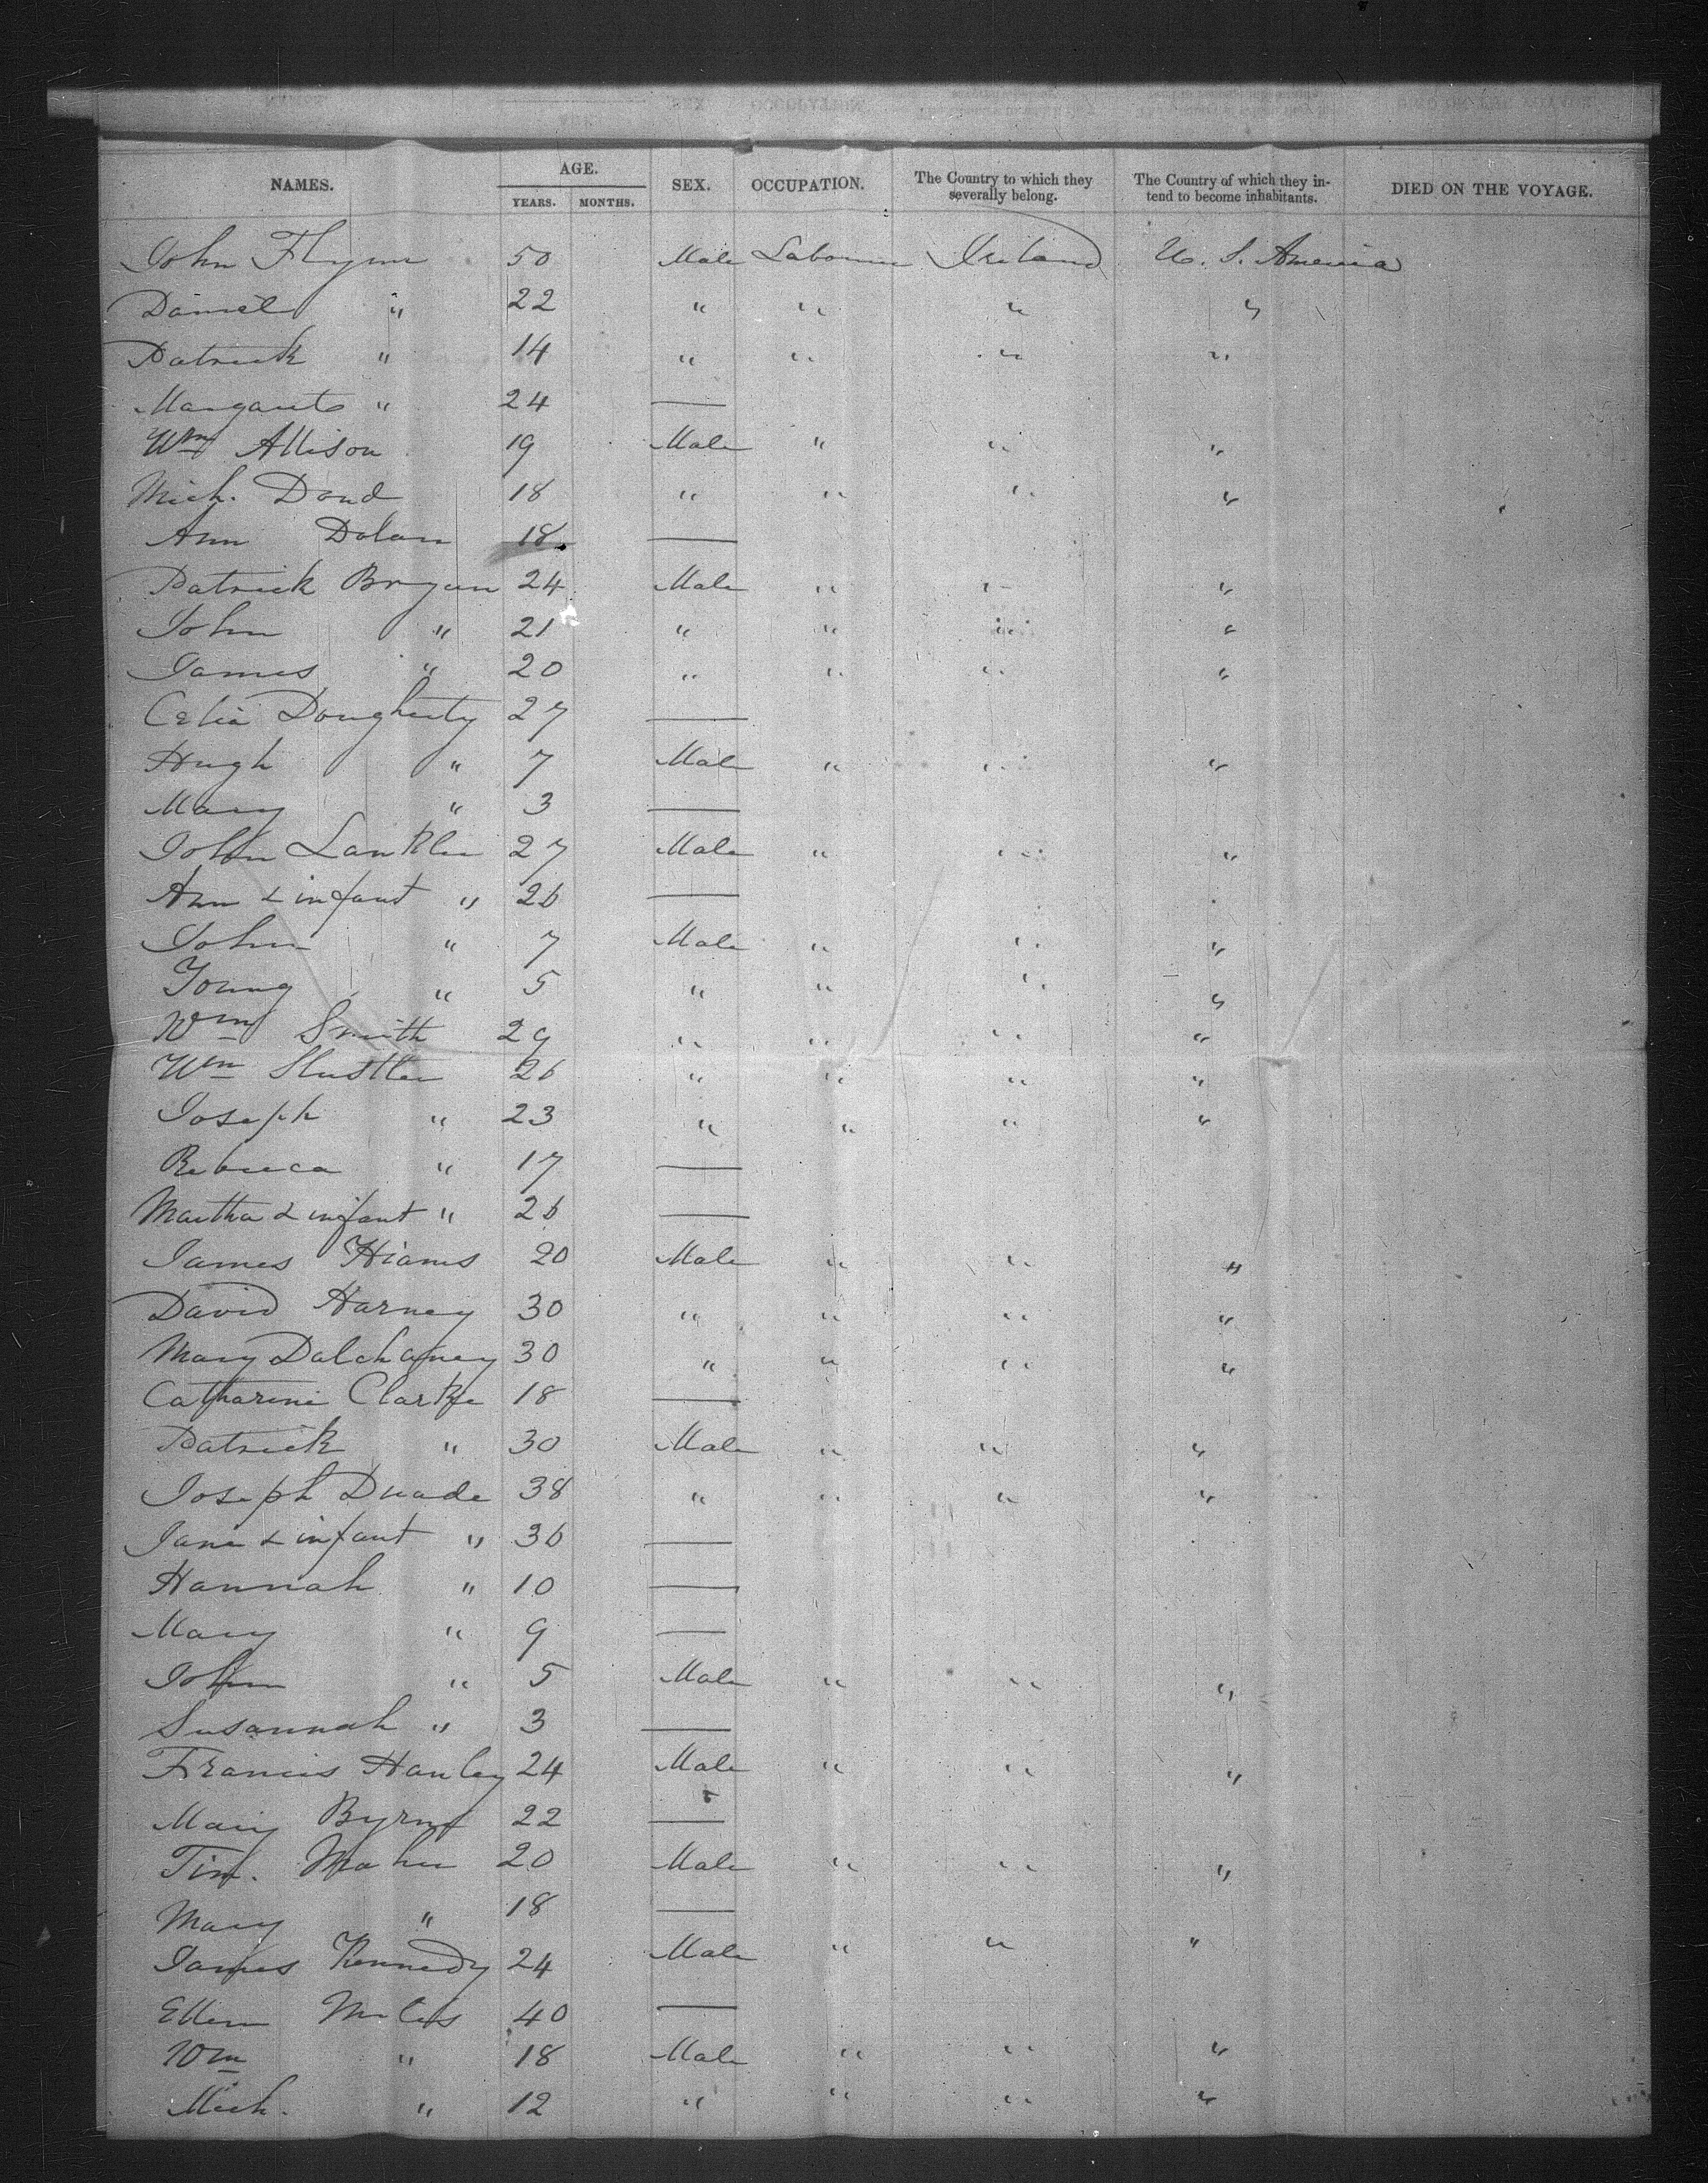 NAMES. AGE. SEX. OCCUPATION. The Country to which they severally belong. The Country of which they intend to become inhabitants. DIED ON THE VOYAGE.
YEARS. MONTHS.
John Flynn 50 Male Labourer Ireland U. S. America
Daniel " 22 " " " "
Patrick " 14 " " " "
Margaret " 24 —
Wm Allison 19 Male " " "
Mich. Doud 18 " " " "
Ann Dolan 18 —
Patrick Bryan 24 Male " " "
John " 21 " " " "
James " 20 " " " "
Celia Dougherty 27 —
Hugh " 7 Male " " "
Mary " 3 —
John 27 Male " " "
Ann & infant " 26 —
John " 7 Male " " "
Young " 5 " " " "
Wm Smith 29 " " " "
Wm 26 " " " "
Joseph " 23 " " " "
Rebecca " 17 —
Martha & infant " 26 —
James Hiams 20 Male " " "
David Harney 30 " " " "
Mary 30 " " " "
Catharine Clarke 18 —
Patrick " 30 Male " " "
Joseph 38 " " " "
Jane & infant " 36 —
Hannah " 10 —
Mary " 9 —
John " 5 Male " " "
Susannah " 3 —
Francis Hanley 24 Male " " "
Mary Byrne 22 —
Tim. Maher 20 Male " " "
Mary " 18 —
James Kennedy 24 Male " " "
Ellen Miles 40 —
Wm " 18 Male " " "
Mich. " 12 " " " "